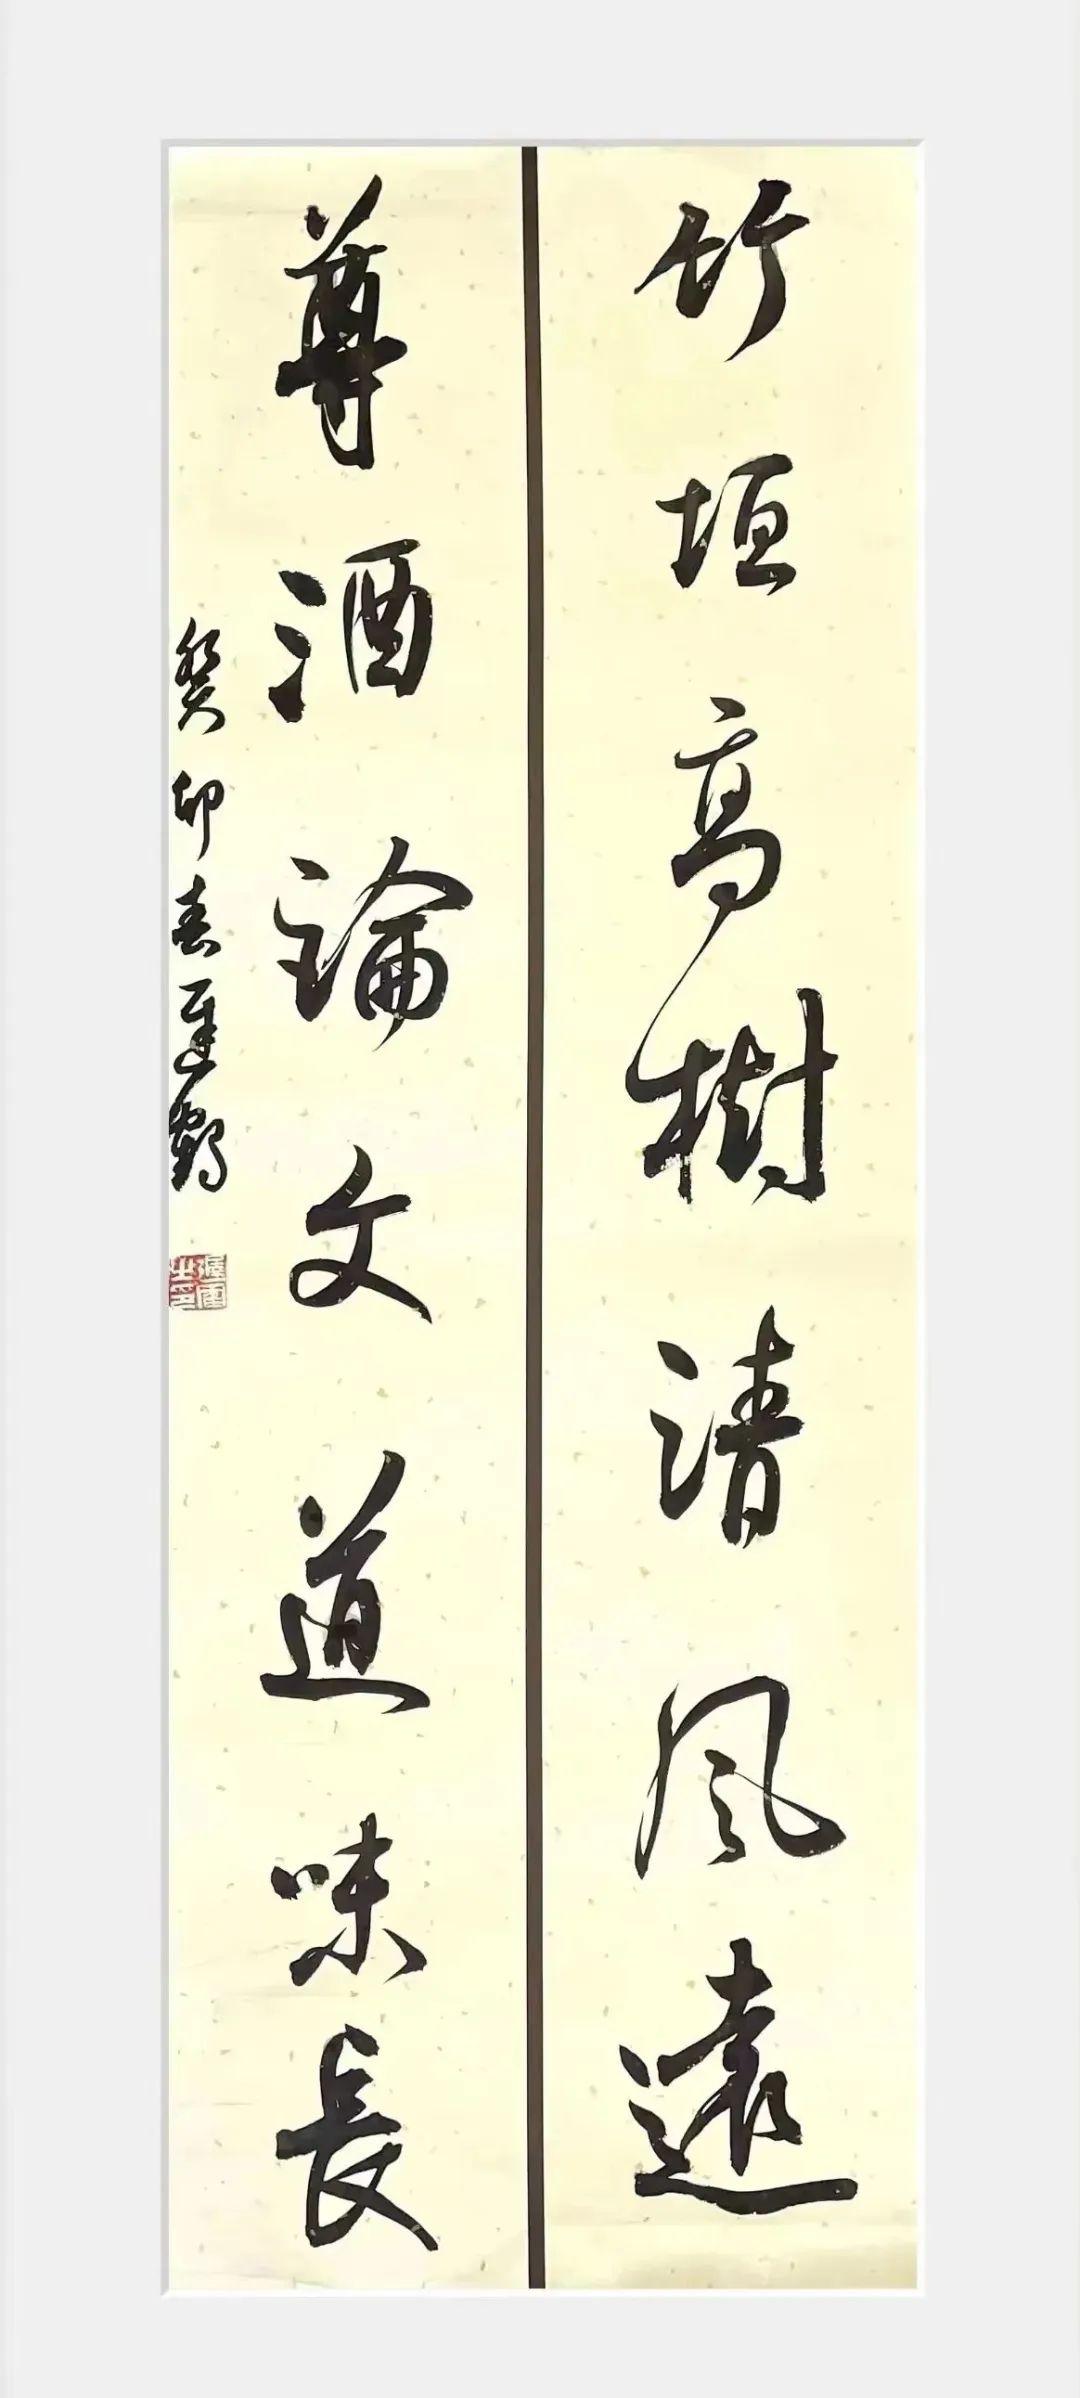 竹垣高樹清風遠
尊酒論文道味長
癸卯春建鶴